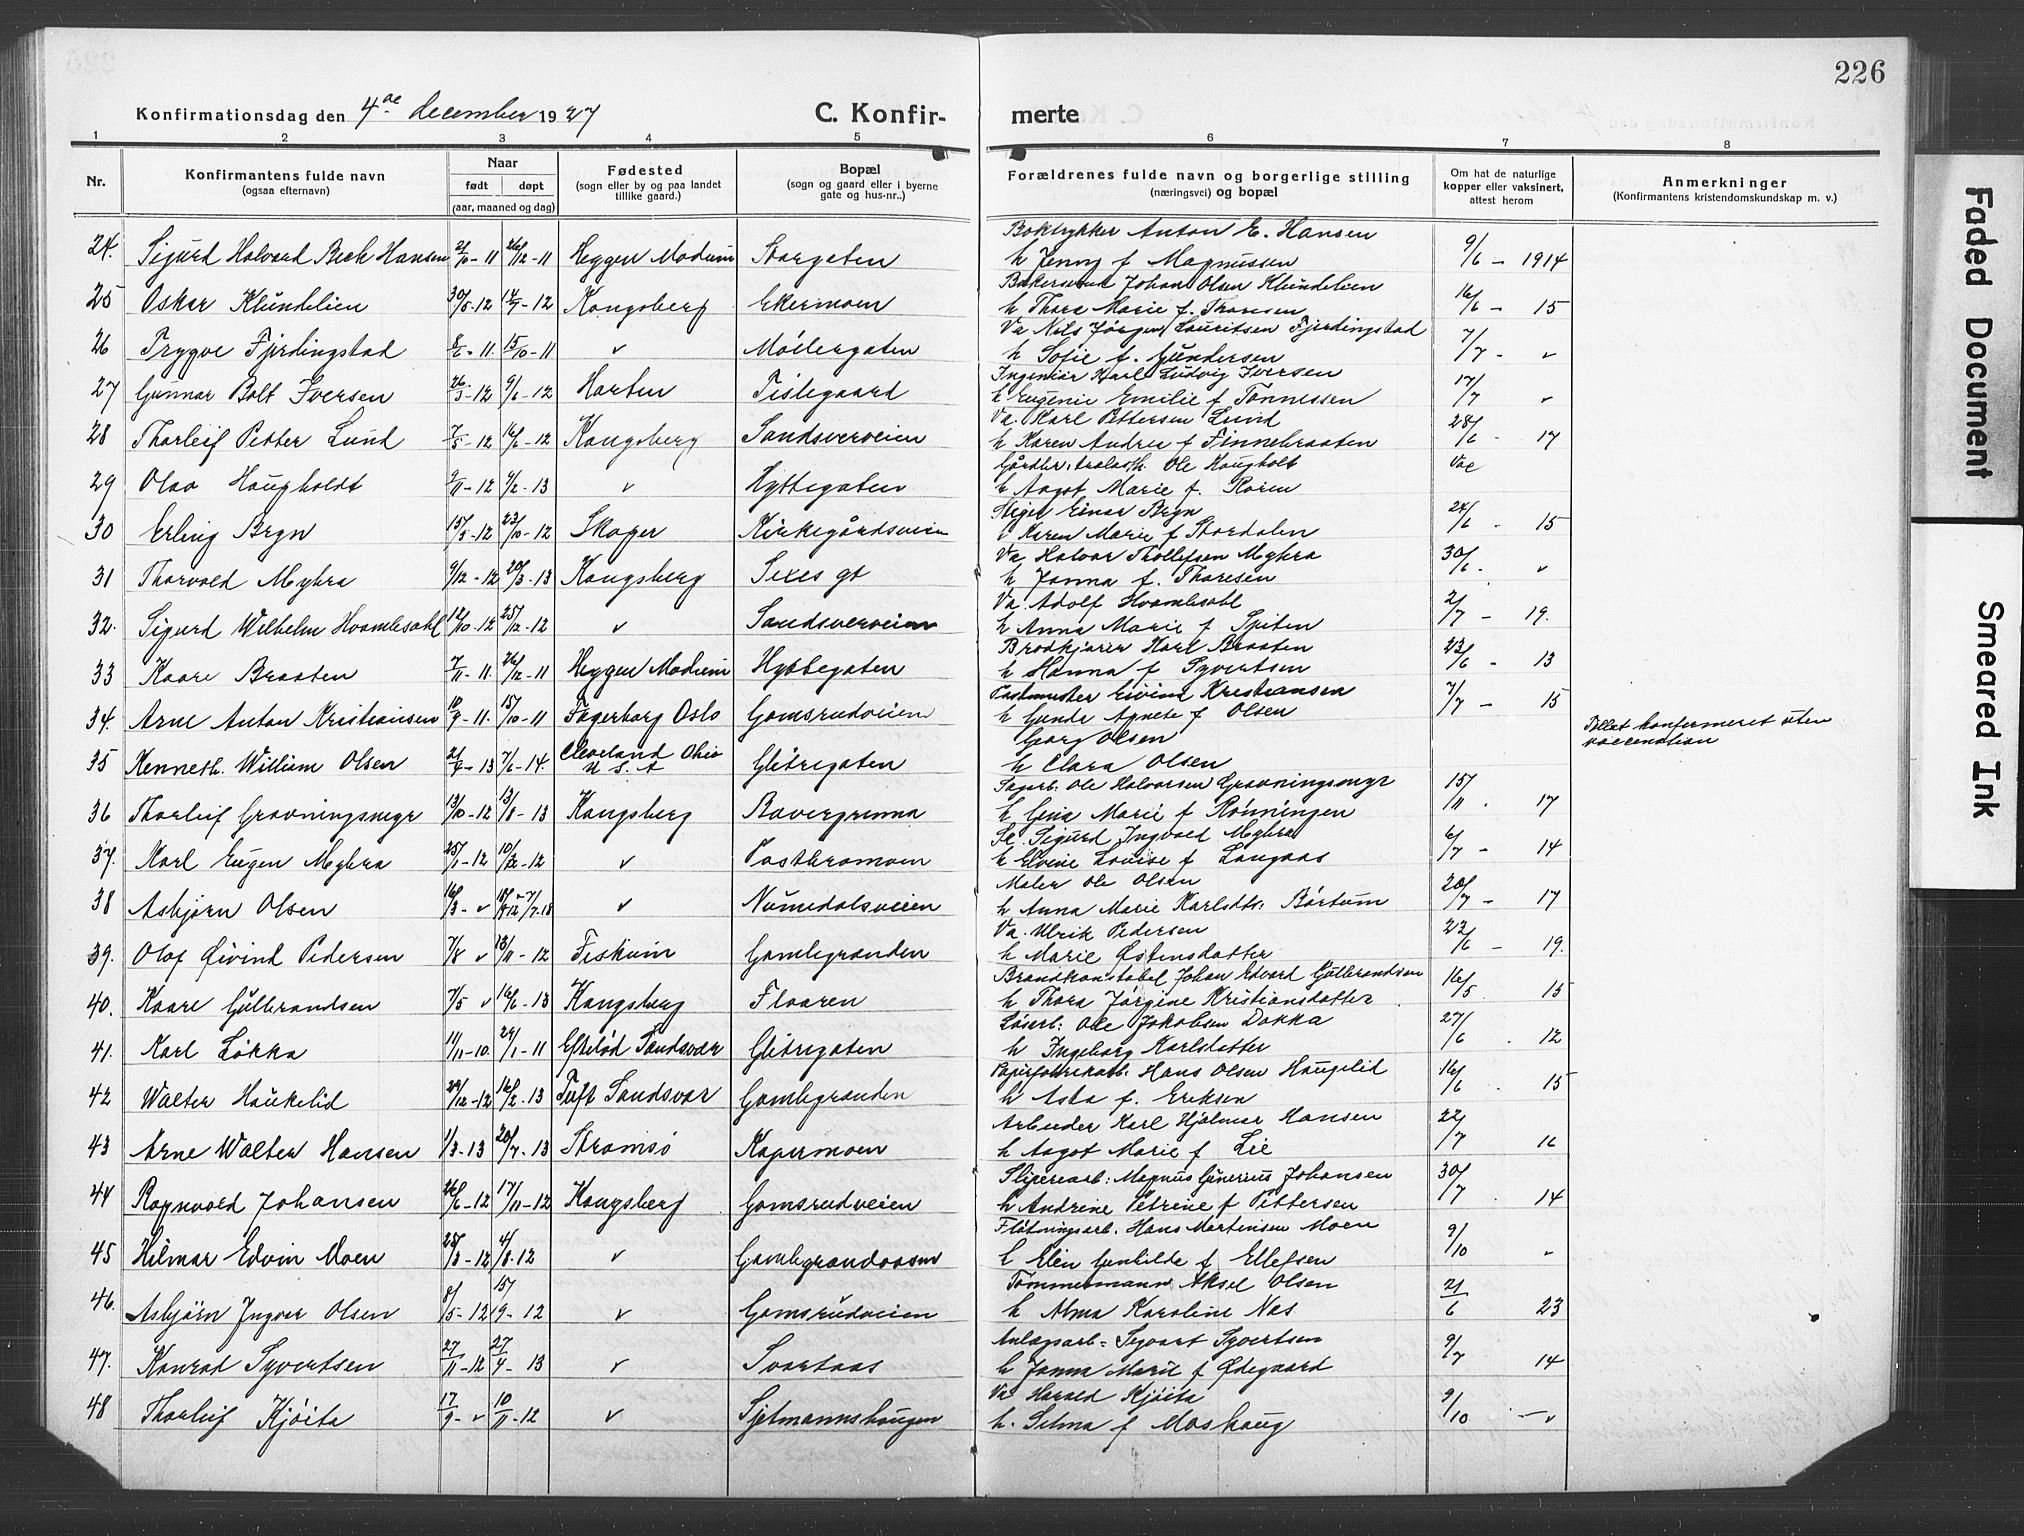 226
Konfirmationsdag den 4de december 1927 C. Konfir- merte
1 2 3 4 5 6 7 8
Nr. Konfirmantens fulde navn (ogsaa efternavn) Naar født døpt (aar, maaned og dag) Fødested (sogn eller by og paa landet tillike gaard.) Bopæl (sogn og gaard eller i byerne gate og hus-nr..) Forældrenes fulde navn og borgerlige stilling (næringsvei) og bopæl Om hat de naturlige kopper eller vaksinert, attest herom Anmerkninger (Konfirmantens kristendomskundskap m. v.)
Boktrykker Anton E. Hansen
24. Sigurd Halvard Beck Hansen 2/10-11 26/12-11 Heggen Modum Storgaten h Jenny f Magnussen 9/6 - 1914
Johan Olsen Klundelien
25 Oskar Klundelien 30/5-12 14/7-12 Kongsberg Ekermoen h Thora Marie f. Thoresen 16/6 - 15
Va Nils Jörgen Lauritsen Fjerdingstad
26 Trygve Fjerdingstad 8/6-11. 15/10-11 v Möllergaten h Sofie f. Gundersen 7/7 - v
Ingeniör Karl Ludvig Iversen
27 Gunnar Bolt Iversen 26/3-12 9/6-12 Horten Tislegaard h Eugenie Emilie f Tönnessen 17/7 v
Va. Karl Pettersen Lund
28 Thorleif Petter Lund 7/5-12 16/6-12 Kongsberg Sandsverveien h Karen Andrea f Finnebraaten 28/6 - 17
Ole Haugholt
29 Olav Haugholdt 9/11-12 9/2-13 v Hyttegaten h Aagot Marie f. Roren Vac
Einar Bryn
30 Erling Bryn 15/5-12 23/10-12 Skoger Kirkegårdsveien Karen Marie f Stordalen 24/6 - 15
Va, Halvor Thollefsen Myhra
31 Thorvald Myhra 9/12-12 20/3-13 Kongsberg Sexes gt h Janna f. Thoresen 30/6. v
Va. Adolf Hvambsahl
32. Sigurd Wilhelm Hvambsahl 12/10-12 25/12-12 v Sandsverveien h Anna Marie f Spiten 2/7 - 19.
Brödkjörer Karl Braaten
33 Kaare Braaten 7/11-11. 26/12-11 Heggen Modum Hyttegaten h Hanna f Syvertsen 23/6 - 13
Postmester Eivind Kristiansen
34. Arne Anton Kristiansen 10/9-11. 15/10-11 Fagerborg Oslo Gomsrudveien h Gunda Agnete f Olsen 7/7 - 15
Georg Olsen Tillat konfirmeret uten vaccenation
35 Kenneth. William Olsen 21/4-13 7/6-14. Cleveland Ohio U S. A Glitregaten h Clara Olsen
Fagarb. Ole Halvorsen Gravningsmyr
36 Thorleif Gravningsmyr 13/10-12 13/8-13 Kongsberg Bævergrenna h Gina Marie f Rönningen 15/11. 17
Sigurd Ingvald Myhra
37. Karl Eugen Myhra 25/1-12 10/12-12 v h Elvine Lovise f Langaas 6/7 - 14
Maler Ole Olsen
38 Asbjørn Olsen 16/3-v v Numedalsveien h Anna Marie Karlsdtr. Börtum 20/7 - 17
Va. Ulrik Pedersen
39. Olaf Øivind Pedersen 7/8 v 13/11-12 Fiskum Gamlegrenden h Marie Østensdatter 22/6 - 19.
Brandkonstabel Johan Edvard Gulbrandsen
40. Kaare Gulbrandsen 7/5 v 16/6-13 Kongsberg Flaaren h Thora Jørgine Kristiansdatter 16/5 15
Løsarb: Ole Jakobsen Dokka
41. Karl Løkka 11/11-10. 29/1-11 Efteløt Sandsvær Glitregaten h Ingeborg Karlsdatter 27/6 . 12
Hans Olsen Haugelid
42 Walter Haukelid 29/12-12 16/2-13 Tuft Sandsvær Gamlegrenden h Asta f. Eriksen 16/6 . 15
Arbeider Karl Hjalmar Hansen
43 Arne Walter Hansen 1/3-13 20/7-13 Strømsö Kapermoen h Aagot Marie f Lie 22/7 16
Sliperiarb: Magnus Ginerius Johansen
44 Ragnvald Johansen 26/6-12 17/11-12 Kongsberg Gomsrudveien h Andrine Petrine f Pettersen 30/7 . 14
Flötningsarb. Hans Martinsen Moen
45 Hilmar Edvin Moen 25/3-12 4/8-12 v h Elen Gunhilde f Ellefsen 9/10 v
Tömmermann Aksel Olsen
46. Asbjørn Ingvar Olsen 8/5-12 15/9-12 v Gomsrudveien h Alma Karoline Næs 21/6 23
Anlægsarb- Syvart Syvertsen
47. Konrad Syvertsen 27/11-12 27/4-13 v Svartaas h Janna Marie f Ødegaard 9/7 14
Va Harald Kjöita
48 Thorleif Kjöita 17/9-v 10/11-12 v Sjetmannshaugen h. Selma f Moshaug 9/10 - v
Faded Document
Smeared Ink